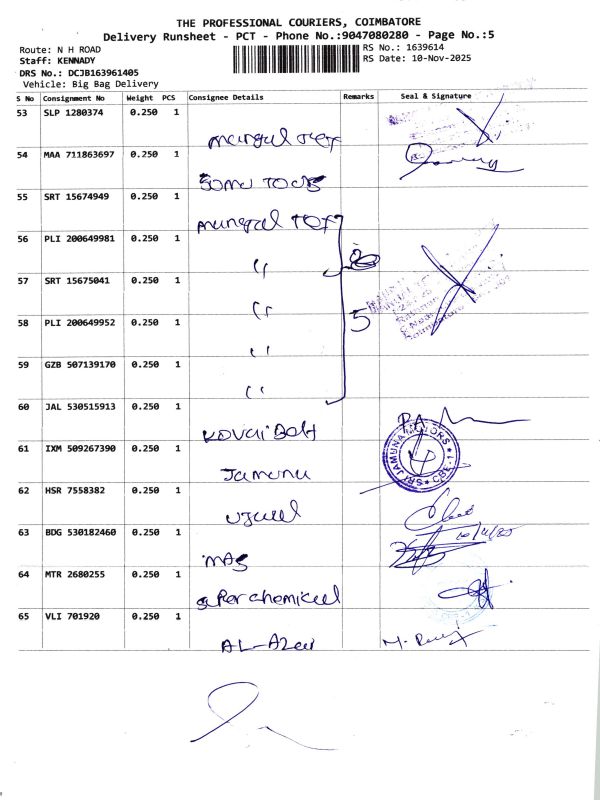 THE PROFESSIONAL COURIERS, COIMBATORE
Delivery Runsheet - PCT - Phone No.:9047080280 - Page No.:5
Route: N H ROAD
RS No.: 1639614
Staff: KENNADY
RS Date: 10-Nov-2025
DRS No.: DCJB163961405
Vehicle: Big Bag Delivery
S No Consignment No Weight PCS Consignee Details Remarks Seal & Signature
53 SLP 1280374 0.250 1
54 MAA 711863697 0.250 1
55 SRT 15674949 0.250 1
56 PLI 200649981 0.250 1
"
57 SRT 15675041 0.250 1
"
5
58 PLI 200649952 0.250 1
"
59 GZB 507139170 0.250 1
"
60 JAL 530515913 0.250 1
Kovai Belt
61 IXM 509267390 0.250 1
Jamunu
SRI JAMUNA MOTORS ★ CBE-1 ★
62 HSR 7558382 0.250 1
63 BDG 530182460 0.250 1
10/11/25
MAS
64 MTR 2680255 0.250 1
super chemicul
65 VLI 701920 0.250 1